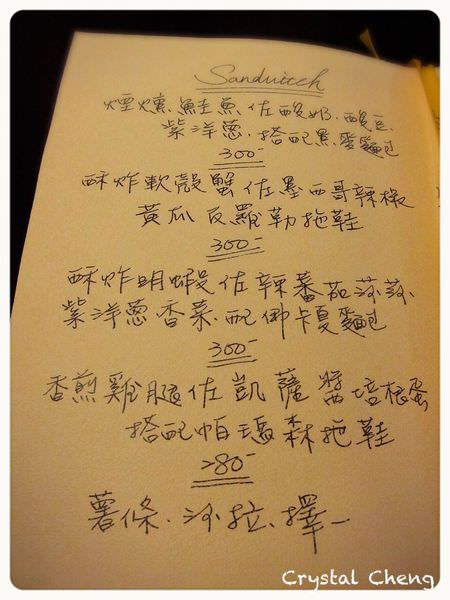 Sanduitch
煙燻鮭魚佐酸奶.酸豆
紫洋蔥.搭配黑麥麵包
300-
酥炸軟殼蟹佐墨西哥辣椒
黃瓜皮羅勒拖鞋
300-
酥炸明蝦佐辣蕃茄莎莎
紫洋蔥香菜.配佛卡夏麵包
300-
香煎雞腿佐凱薩醬培根蛋
搭配帕瑪森拖鞋
280-
薯條.沙拉.擇一
Crystal Cheng